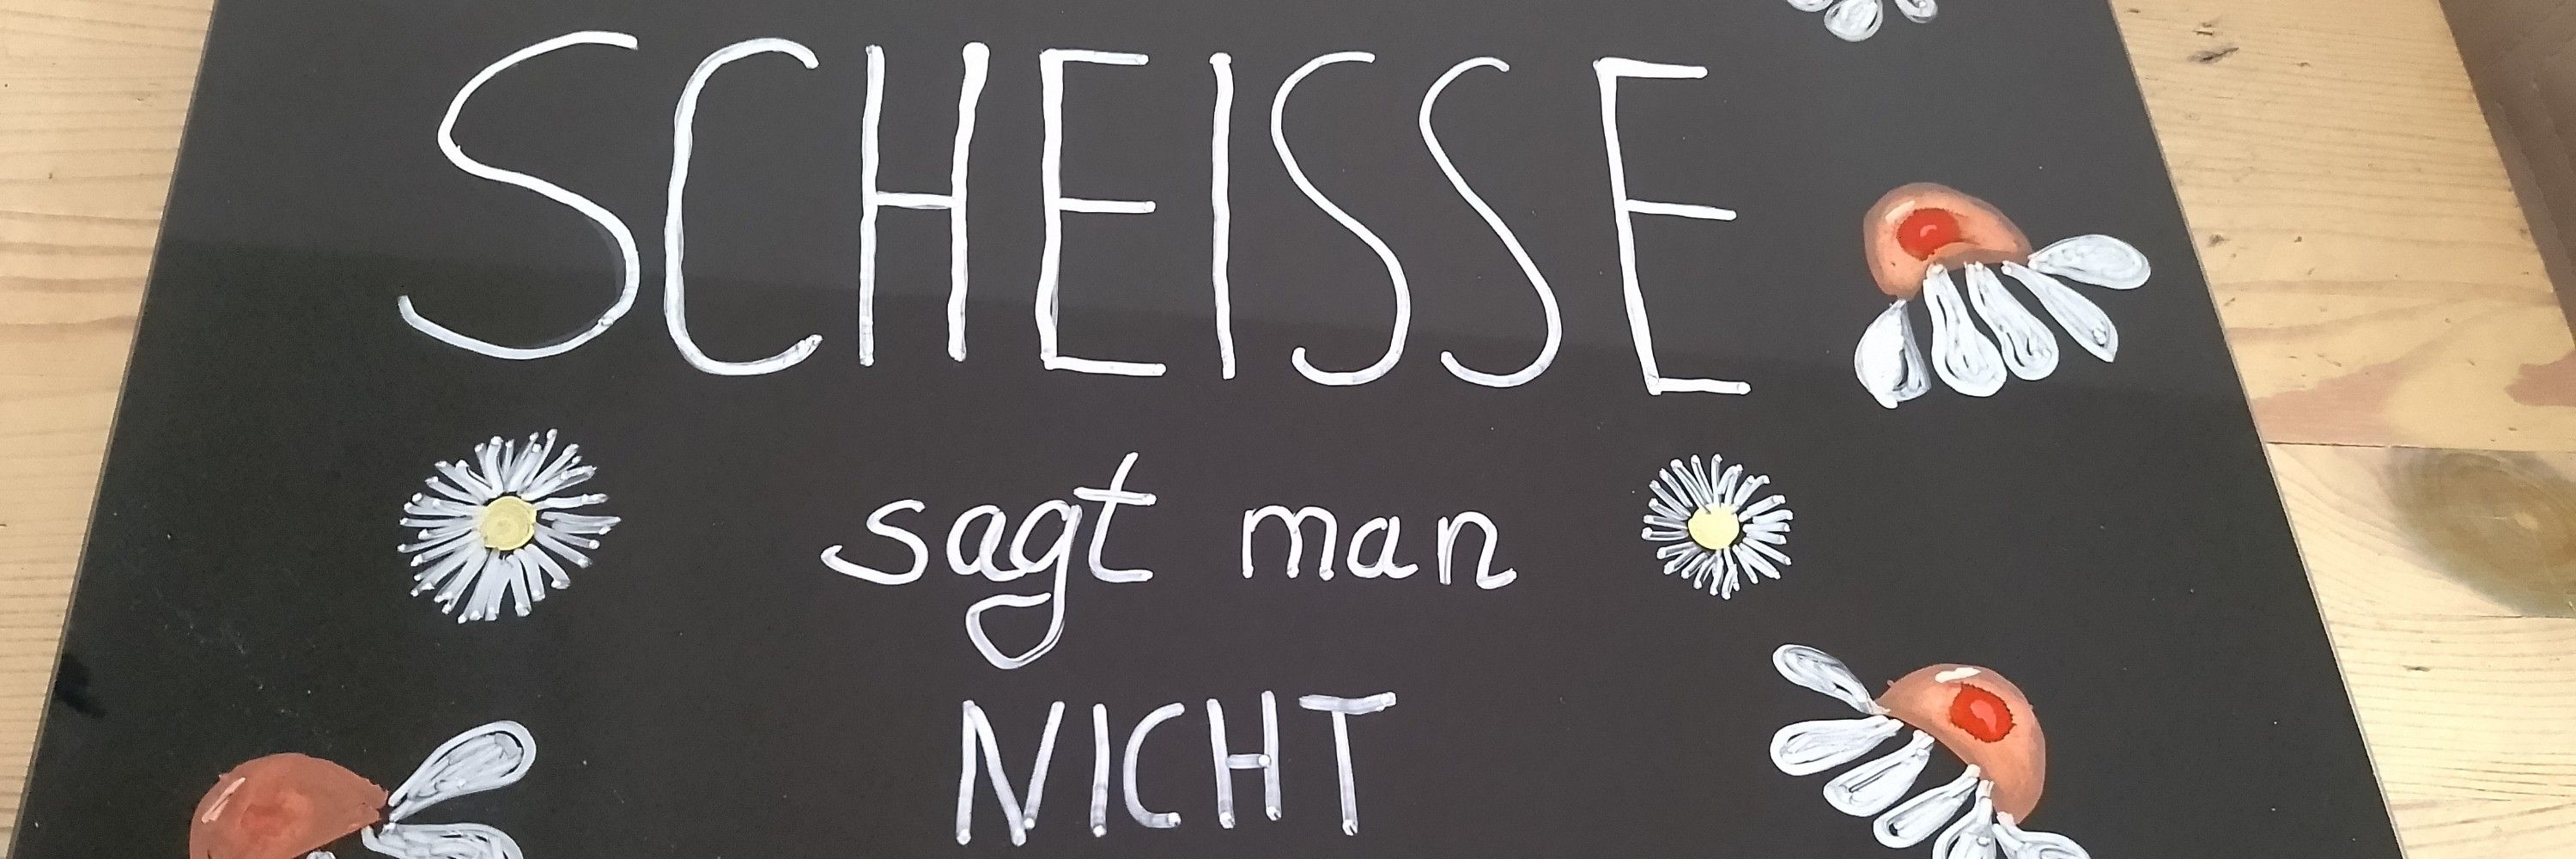 SCHEISSE
sagt man
NICHT